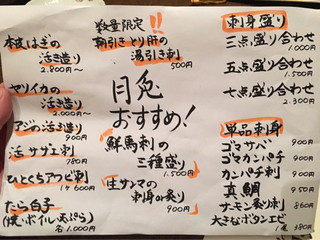 本皮はぎの
活き造り
2.800～
ヤリイカの
活き造り
2.000～
アジの活き造り
900円
活サザエ刺
780円
ひとくちアワビ刺
1ケ600円
たら白子
(焼・ボイル・天ぷら)
各1.000円
数量限定!!
朝引きとり肝の
湯引き刺
500円
月色
おすすめ!
鮮馬刺の
三種盛り
1.500円
生サンマの
刺身or炙り
900円
刺身盛り
三点盛り合わせ
1.000円
五点盛り合わせ
1.500円
七点盛り合わせ
2.300円
単品刺身
ゴマサバ 900円
ゴマカンパチ 900円
カンパチ刺 900円
真鯛 950円
サーモン炙り刺 860円
大きなボタンエビ
1尾 380円